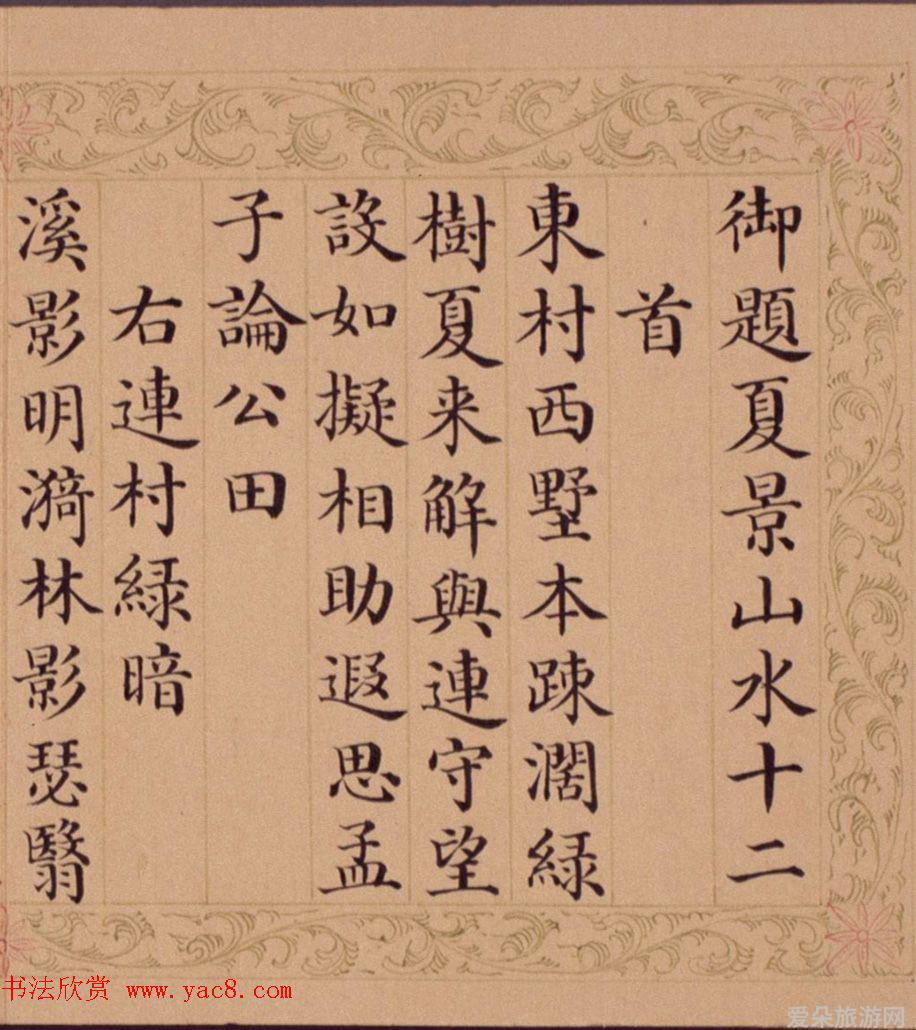 御題夏景山水十二
首
東村西墅本踈濶緑
樹夏来解與連守望
設如擬相助遐思孟
子論公田
右連村緑暗
溪影明漪林影瑟翳
书法欣赏 www.yac8.com
爱朵旅游网